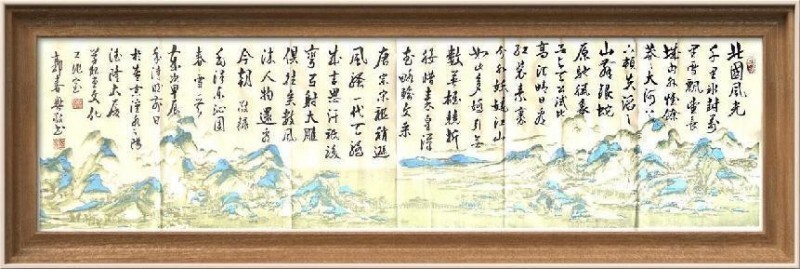 北國風光
千里冰封萬
里雪飄望長
城內外惟餘
莽莽大河上
下頓失滔滔
山舞銀蛇
原馳蠟象
欲與天公試比
高須晴日看
紅裝素裹
分外妖嬈江山
如此多嬌引無
數英雄競折
腰惜秦皇漢
武略輸文采
唐宗宋祖稍遜
風騷一代天驕
成吉思汗只識
彎弓射大雕
俱往矣數風
流人物還看
今朝 敬錄
毛澤東沁園
春雪一首